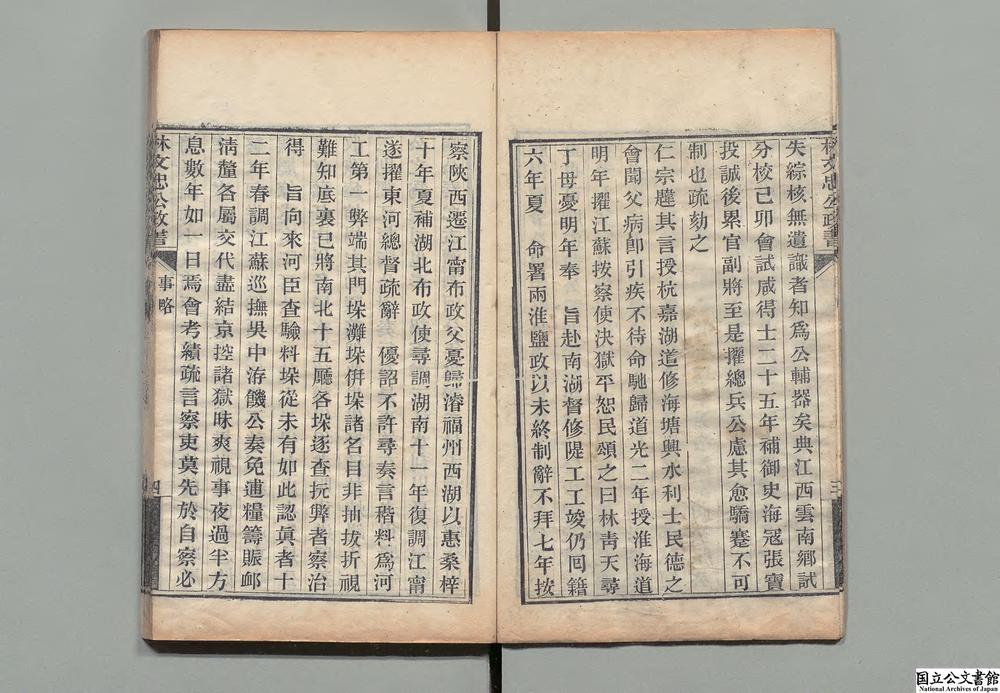 林文忠公政書
三
失綜核無遺識者知爲公輔器矣典江西雲南鄉試
分校己卯會試咸得士二十五年補御史海寇張寶
投誠後累官副將至是擢總兵公慮其愈驕蹇不可
制也疏劾之
仁宗韙其言授杭嘉湖道修海塘興水利士民德之
會聞父病卽引疾不待命馳歸道光二年授淮海道
明年擢江蘇按察使決獄平恕民頌之曰林靑天尋
丁母憂明年奉　旨赴南湖督修隄工工竣仍囘籍
六年夏　命署兩淮鹽政以未終制辭不拜七年按
察陝西遷江甯布政父憂歸濬福州西湖以惠桑梓
十年夏補湖北布政使尋調湖南十一年復調江甯
遂擢東河總督疏辭　優詔不許尋奏言稭料爲河
工第一弊端其門垛灘垛併垛諸名目非抽拔折視
難知底裏已將南北十五廳各垛逐查玩弊者察治
得　旨向來河臣查驗料垛從未有如此認眞者十
二年春調江蘇巡撫吳中洊饑公奏免逋糧籌賑卹
淸釐各屬交代盡結京控諸獄昧爽視事夜過半方
息數年如一日焉會考績疏言察吏莫先於自察必
林文忠公政書
事略
四
国立公文書館
National Archives of Japan